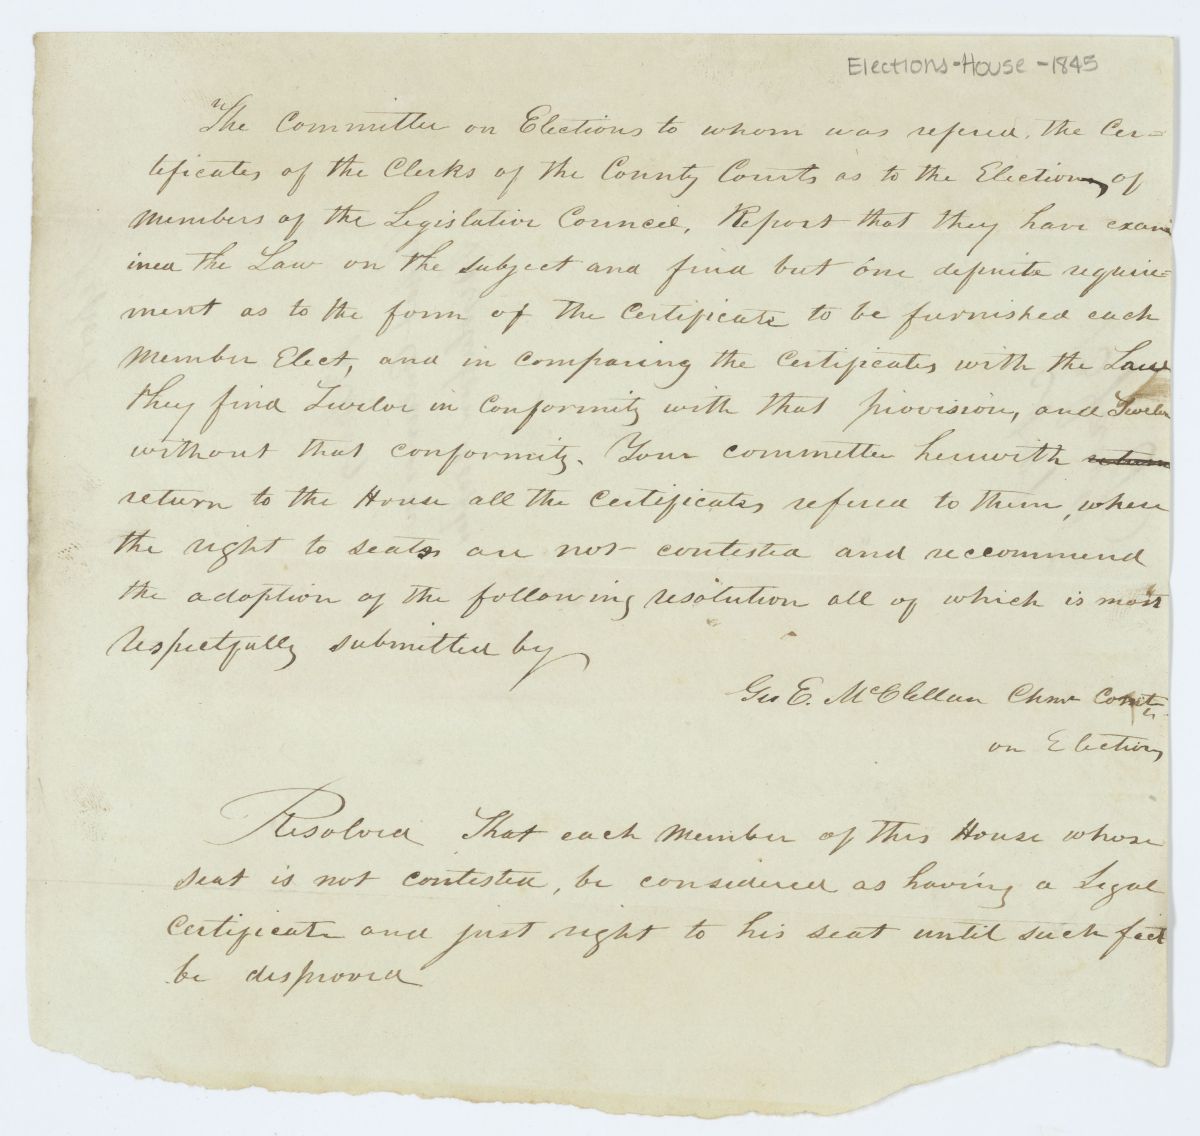 Elections-House -1845
The Committee on Elections to whom was refered, the Cer=
tificates of the Clerks of the County Courts as to the Elections of
Members of the Legislative Council, Report that they have exam
ined the Law on the subject and find but one definite require=
ment as to the form of the Certificate to be furnished each
Member Elect, and in comparing the Certificates with the Law
they find Twelve in conformity with that provision, and Twelve
without that conformity. Your committee herewith return
return to the House all the Certificates refered to them, where
the right to seats are not contested and reccommend
the adoption of the following resolution all of which is most
respectfully submitted by
Geo E. McClellan Chmn Comte
on Elections
Resolved That each Member of this House whose
seat is not contested, be considered as having a Legal
Certificate and just right to his seat until such fact
be disproved